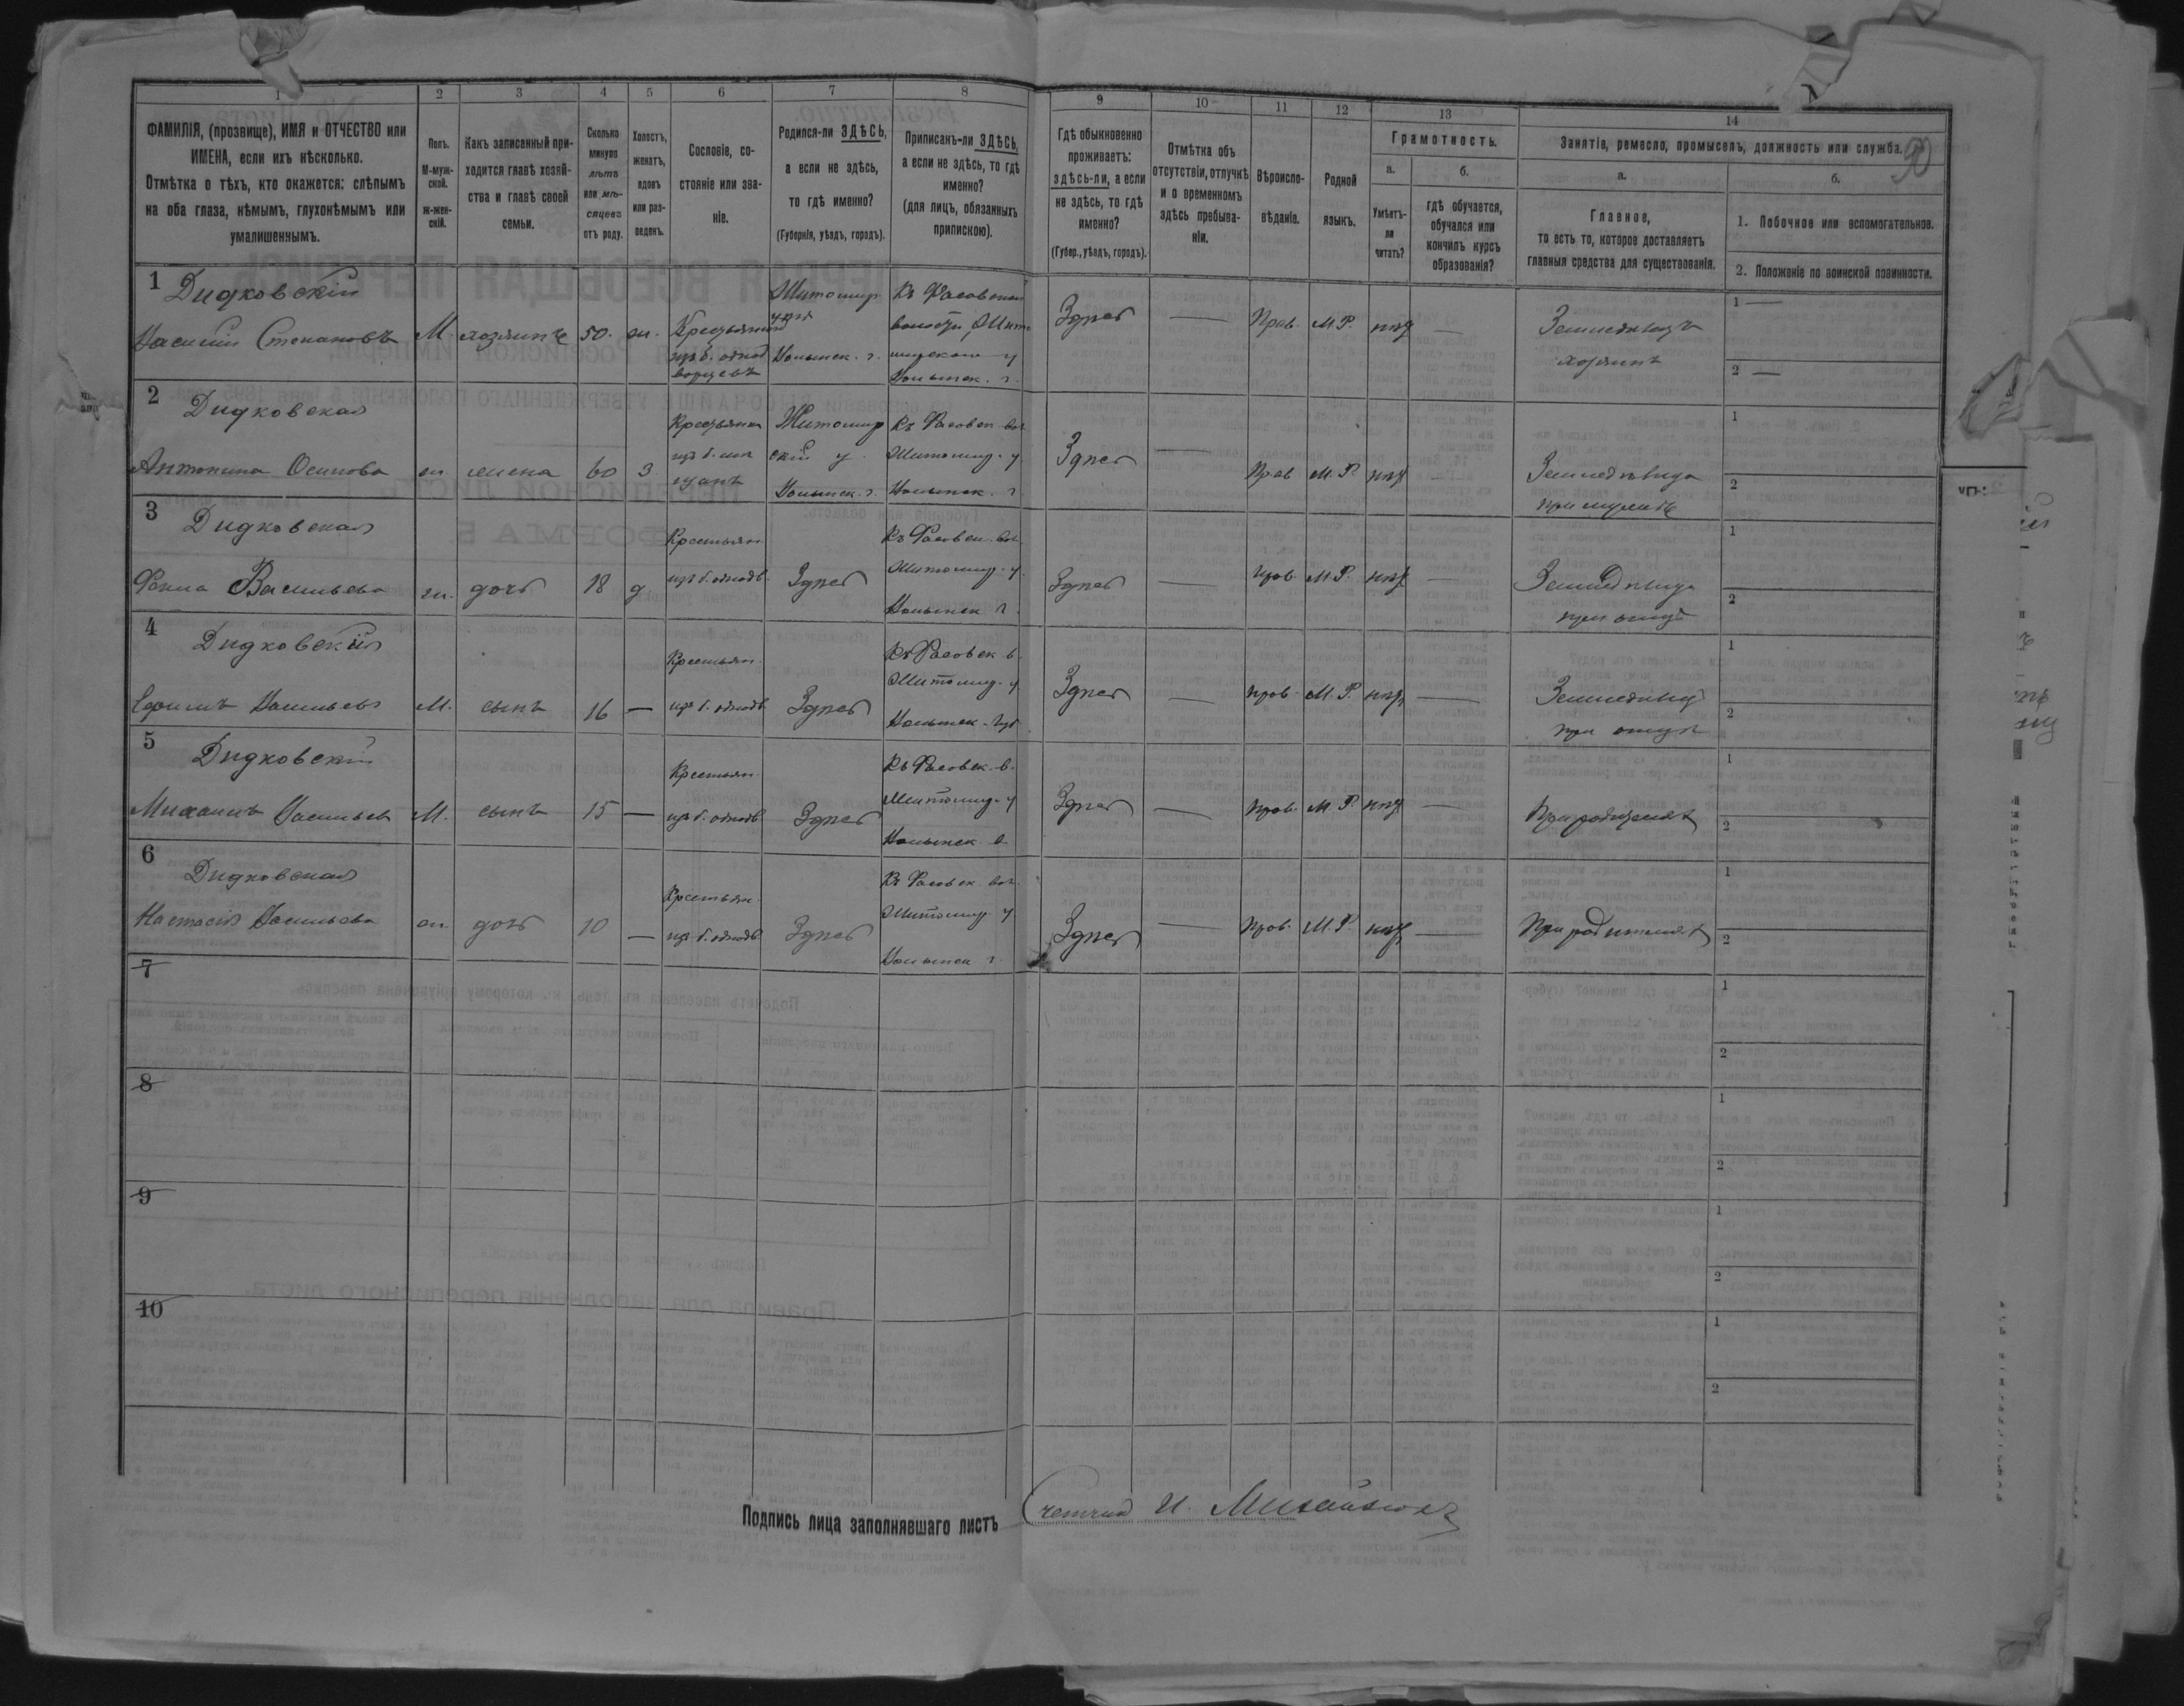 1 2 3 4 5 6 7 8 9 10 11 12 13 14
ФАМИЛІЯ, (прозвище), ИМЯ и ОТЧЕСТВО или
ИМЕНА, если ихъ нѣсколько.
Отмѣтка о тѣхъ, кто окажется: слѣпымъ
на оба глаза, нѣмымъ, глухонѣмымъ или
умалишеннымъ.
Полъ.
М-муж-
ской.
ж-жен-
скій.
Какъ записанный при-
ходится главѣ хозяй-
ства и главѣ своей
семьи.
Сколько
минуло
лѣтъ
или мѣ-
сяцевъ
отъ роду.
Холостъ,
женатъ,
вдовъ
или раз-
веденъ.
Сословіе, со-
стояніе или зва-
ніе.
Родился-ли ЗДѢСЬ,
а если не здѣсь,
то гдѣ именно?
(Губернія, уѣздъ, городъ).
Приписанъ-ли ЗДѢСЬ,
а если не здѣсь, то гдѣ
именно?
(для лицъ, обязанныхъ
припискою).
Гдѣ обыкновенно
проживаетъ:
здѣсь-ли, а если
не здѣсь, то гдѣ
именно?
(Губер., уѣздъ, городъ).
Отмѣтка объ
отсутствіи, отлучкѣ
и о временномъ
здѣсь пребыва-
ніи.
Вѣроиспо-
вѣданіе.
Родной
языкъ.
Грамотность.
а.
Умѣетъ-
ли
читать?
б.
гдѣ обучается,
обучался или
кончилъ курсъ
образованія?
Занятіе, ремесло, промыселъ, должность или служба.
90
а.
Главное,
то есть то, которое доставляетъ
главныя средства для существованія.
б.
1. Побочное или вспомогательное.
2. Положеніе по воинской повинности.
1 Дидковскій
Василій Степановъ М. хозяинъ 50. ж. Крестьянинъ
изъ б. однод
ворцевъ
Житомир
уѣзд
Волынск. г.
Къ Фасовской
волости, Жито
мирскаго у
Волынск. г.
Здѣсь — Прав. М.Р. нѣт — Земледѣлецъ
хозяинъ
1 —
2 —
2 Дидковская
Антонина Осипова ж. жена 60 з Крестьянка
изъ б. мѣ
щанъ
Житомир
скій у.
Волынск. г.
Къ Фасовск. вол.
Житомир. у
Волынск. г
Здѣсь — Прав М.Р. нѣт — Земледѣлица
при мужѣ
1
2
3 Дидковская
Васильева ж. дочь 18 д Крестьян.
изъ б. однодв. Здѣсь
Къ Фасовск. вол.
Житомир. у.
Волынск г.
Здѣсь — прав. М.Р. нѣт — Земледѣлица
при отцѣ
1
2
4 Дидковскій
Ефимъ Васильевъ М. сынъ 16 — Крестьян.
изъ б. однодв. Здѣсь
Къ Фасовск в.
Житомир. у
Волынск. губ
Здѣсь — прав. М.Р. нѣт — Земледѣлец
при отцѣ
1
2
5 Дидковскій
Михаилъ Васильев М. сынъ 15 — Крестьян.
изъ б. однодв. Здѣсь
Къ Фасовск. в.
Житомир. у
Волынск г.
Здѣсь — Прав. М.Р. нѣт — При родителях
1
2
6 Дидковская
Настасія Васильева ж. дочь 10 — Крестьян.
изъ б. однодв. Здѣсь
Къ Фасовск вол.
Житомир. у
Волынск г.
Здѣсь — Прав. М.Р. нѣт — При родителях
1
2
7
1
2
8
1
2
9
1
2
10
1
2
Подпись лица заполнявшаго листъ Счетчик И. Михайлюкъ